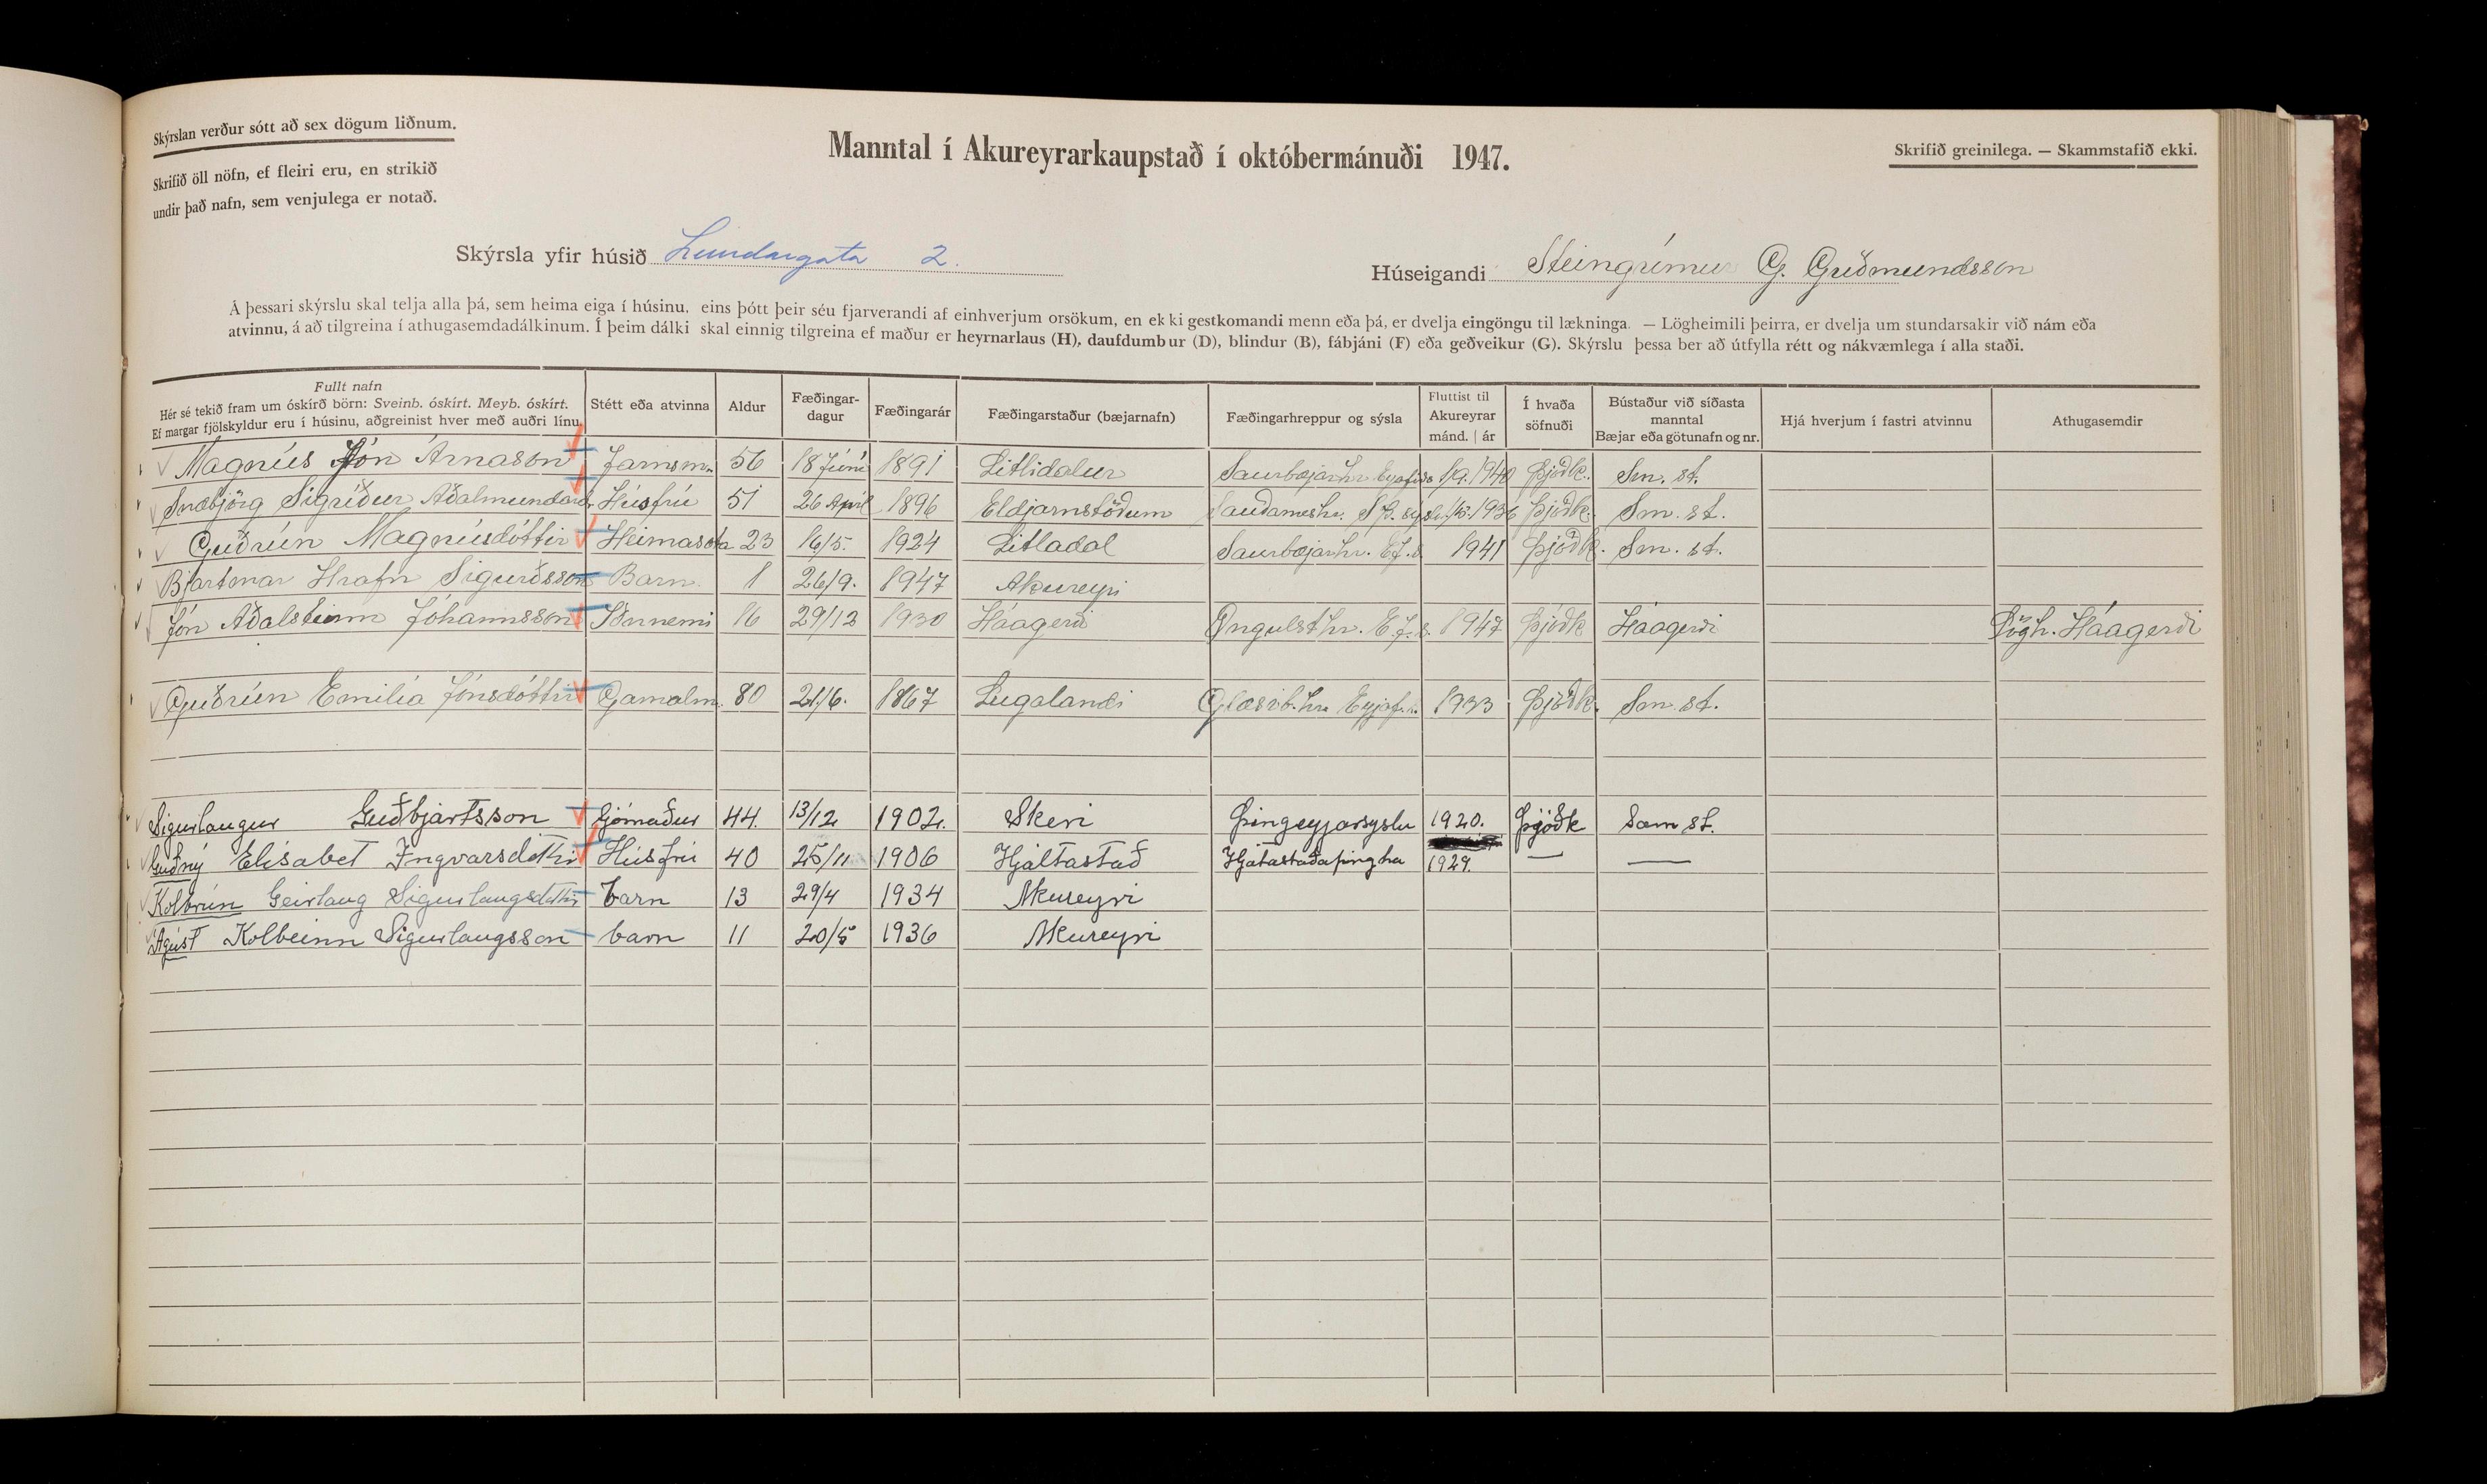 Skýrslan verður sótt að sex dögum liðnum.
Skrifið öll nöfn, ef fleiri eru, en strikið
undir það nafn, sem venjulega er notað.
Manntal í Akureyrarkaupstað í októbermánuði 1947.
Skrifið greinilega. — Skammstafið ekki.
Skýrsla yfir húsið Lundargata 2.
Húseigandi Steingrímur G. Guðmundsson
Á þessari skýrslu skal telja alla þá, sem heima eiga í húsinu, eins þótt þeir séu fjarverandi af einhverjum orsökum, en ekki gestkomandi menn eða þá, er dvelja eingöngu til lækninga. — Lögheimili þeirra, er dvelja um stundarsakir við nám eða
atvinnu, á að tilgreina í athugasemdadálkinum. Í þeim dálki skal einnig tilgreina ef maður er heyrnarlaus (H), daufdumbur (D), blindur (B), fábjáni (F) eða geðveikur (G). Skýrslu þessa ber að útfylla rétt og nákvæmlega í alla staði.
Fullt nafn
Hér sé tekið fram um óskírð börn: Sveinb. óskírt. Meyb. óskírt.
Ef margar fjölskyldur eru í húsinu, aðgreinist hver með auðri línu.
Stétt eða atvinna
Aldur
Fæðingar-
dagur
Fæðingarár
Fæðingarstaður (bæjarnafn)
Fæðingarhreppur og sýsla
Fluttist til
Akureyrar
mánd. | ár
Í hvaða
söfnuði
Bústaður við síðasta
manntal
Bæjar eða götunafn og nr.
Hjá hverjum í fastri atvinnu
Athugasemdir
Magnús Jón Árnason Járnsm. 56 18 Júní 1891 Litlidalur Saurbæjarhr. 1940 Þjóðk. Sm. st.
Snæbjörg Sigríður Aðalmundard. Húsfrú 51 26 Apríl 1896 Eldjarnstöðum Sauðaneshr. 1936 Þjóðk. Sm. st.
Guðrún Magnúsdóttir Heimasæta 23 16/5. 1924 Litladal Saurbæjarhr. Ef.s. 1941 Þjóðk. Sm. st.
Bjartmar Hrafn Sigurðsson Barn 1 26/9. 1947 Akureyri
Jón Aðalsteinn Jóhannsson Iðnnemi 16 29/12 1930 Háagerði Öngulsthr. E.f.s. 1947 Þjóðk Háagerði Lögh. Háagerði
Guðrún Emilía Jónsdóttir Gamalm. 80 21/6. 1867 Laugalandi Glæsib.hr. Eyjaf.s. 1933 Þjóðk. Sm. st.
Sigurlaugur Guðbjartsson Sjómaður 44. 13/12 1902. Skeri Þingeyjarsyslu 1920. Þjóðk Sam st.
Guðný Elísabet Ingvarsdóttir Húsfrú 40 25/11 1906 Hjaltastað Hjaltastaðaþingha 1929. — —
Kolbrún Geirlaug Sigurlaugsdóttir barn 13 29/4 1934 Akureyri
Ágúst Kolbeinn Sigurlaugsson barn 11 20/5 1936 Akureyri